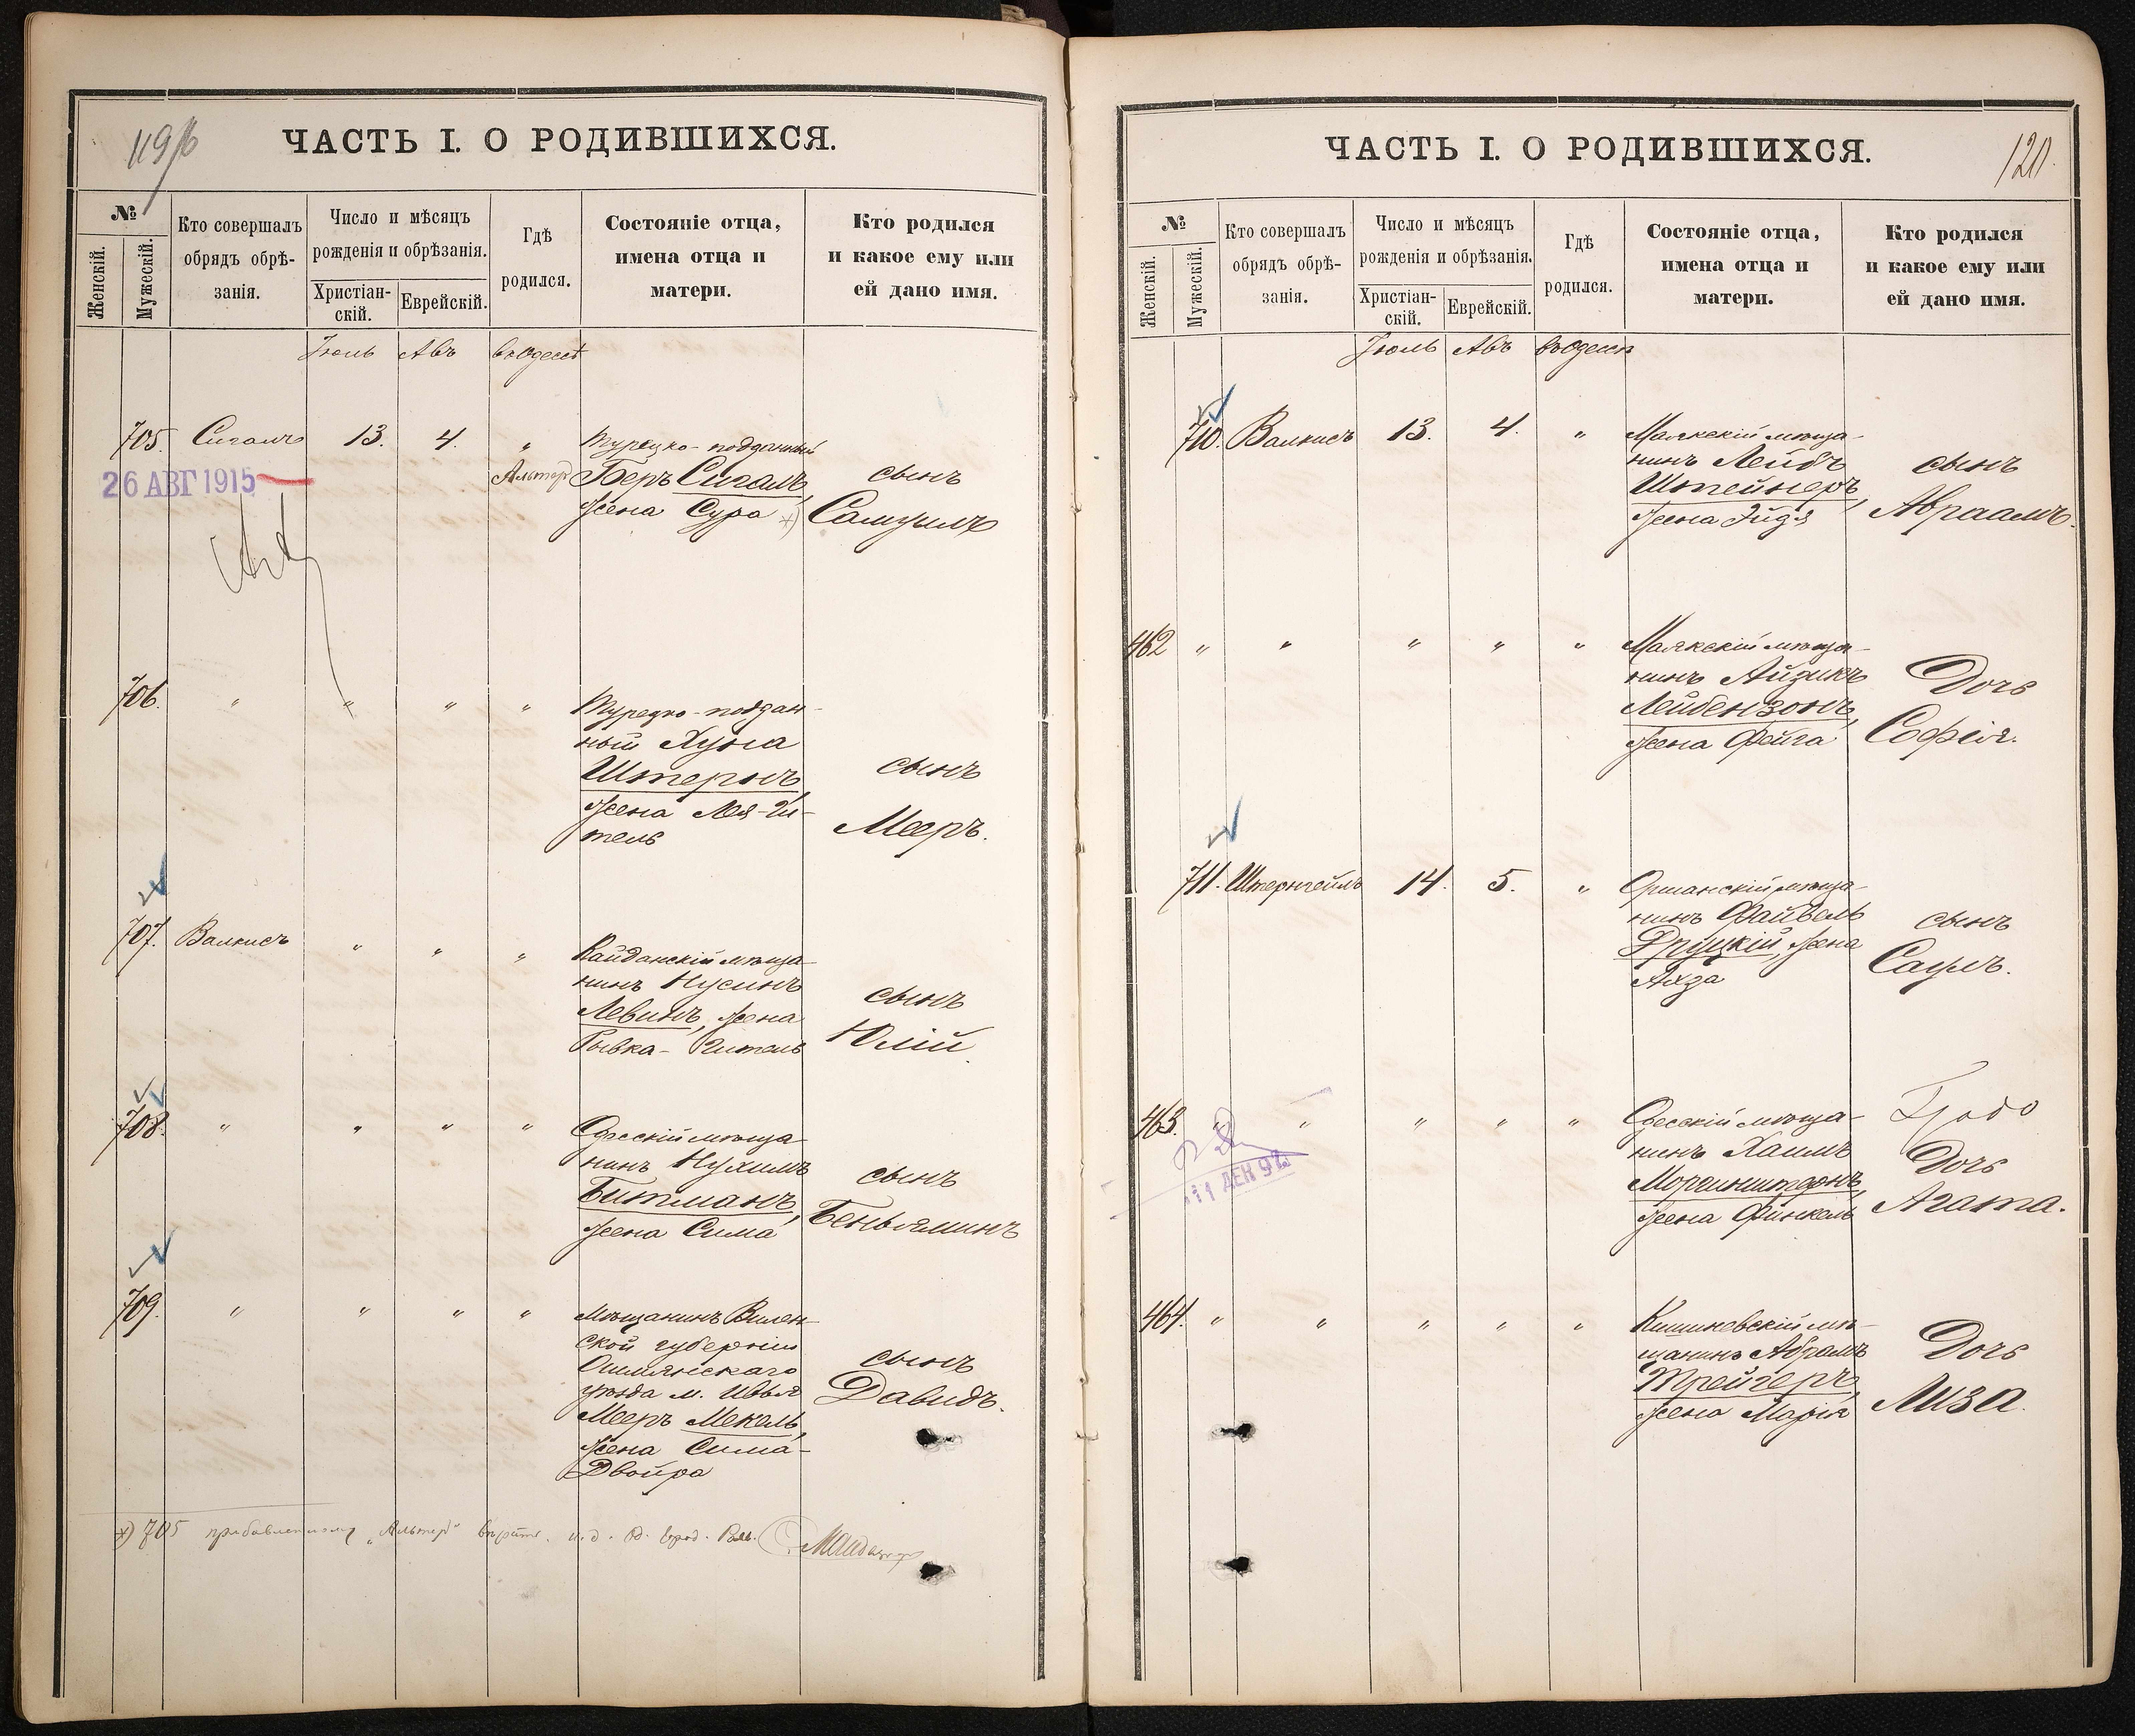 119 об
ЧАСТЬ I. О РОДИВШИХСЯ.
№
Женскій.
Мужескій.
Кто совершалъ
обрядъ обрѣ-
занія.
Число и мѣсяцъ
рожденія и обрѣзанія.
Христіан-
скій.
Еврейскій.
Гдѣ
родился.
Состояніе отца,
имена отца и
матери.
Кто родился
и какое ему или
ей дано имя.
Іюль Авъ въ Одессѣ
705. Сигалъ 13. 4. „ Турецко-подданный
26 АВГ 1915
Альтеръ Беръ Сигалъ,
жена Сура *)
сынъ
Самуилъ
706. „ „ „ „ Турецко-поддан-
ный Хуна
Штернъ,
жена Лея-Ги-
тель
сынъ
Мееръ.
707. Валкисъ „ „ „ Кайданскій мѣща-
нинъ Нусинъ
Левинъ, жена
Рывка-Гитель
сынъ
Юлій
708. „ „ „ „ Одесскій мѣща-
нинъ Нухимъ
Битманъ,
жена Сима
сынъ
Беньяминъ
709. „ „ „ „ Мѣщанинъ Вилен-
ской губерніи
Ошмянскаго
уѣзда м. Ивья
Мееръ Мекель,
жена Сима-
Двойра
сынъ
Давидъ.
*) 705 прибавленному „Альтеръ" вѣрить. и. д. Од. Город. Рав.
120.
ЧАСТЬ I. О РОДИВШИХСЯ.
№
Женскій.
Мужескій.
Кто совершалъ
обрядъ обрѣ-
занія.
Число и мѣсяцъ
рожденія и обрѣзанія.
Христіан-
скій.
Еврейскій.
Гдѣ
родился.
Состояніе отца,
имена отца и
матери.
Кто родился
и какое ему или
ей дано имя.
Іюль Авъ въ Одессѣ
710. Валкисъ 13. 4. „ Маякскій мѣща-
нинъ Лейбъ
Штейнеръ,
жена Эйдя
сынъ
Авраамъ.
462 „ „ „ „ „ Маякскій мѣща-
нинъ Айзикъ
Лейбензонъ,
жена Фейга
Дочь
Софія.
711. Штернгеймъ 14. 5. „ Оршанскій мѣща-
нинъ Файвель
Друцкій, жена
Алза
сынъ
Саулъ.
463. „ „ „ „ „ Одесскій мѣща-
нинъ Хаимъ
Моргенштернъ,
жена Финкель
Дочь
Агата.
11 ДЕК 97
464. „ „ „ „ „ Кишиневскій мѣ-
щанинъ Абрамъ
Трейгеръ,
жена Марія
Дочь
Лиза.